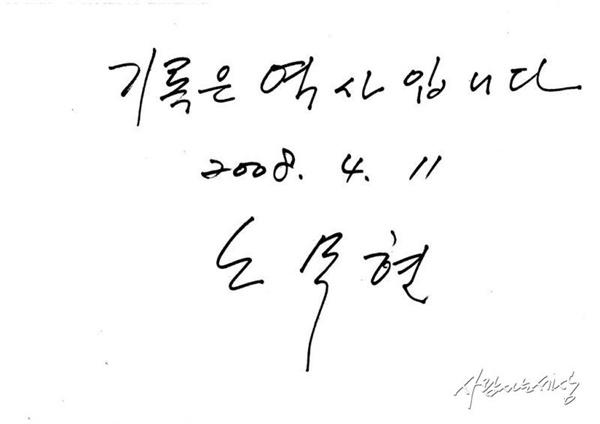 기록은 역사입니다
2008. 4. 11
노무현
사람사는세상